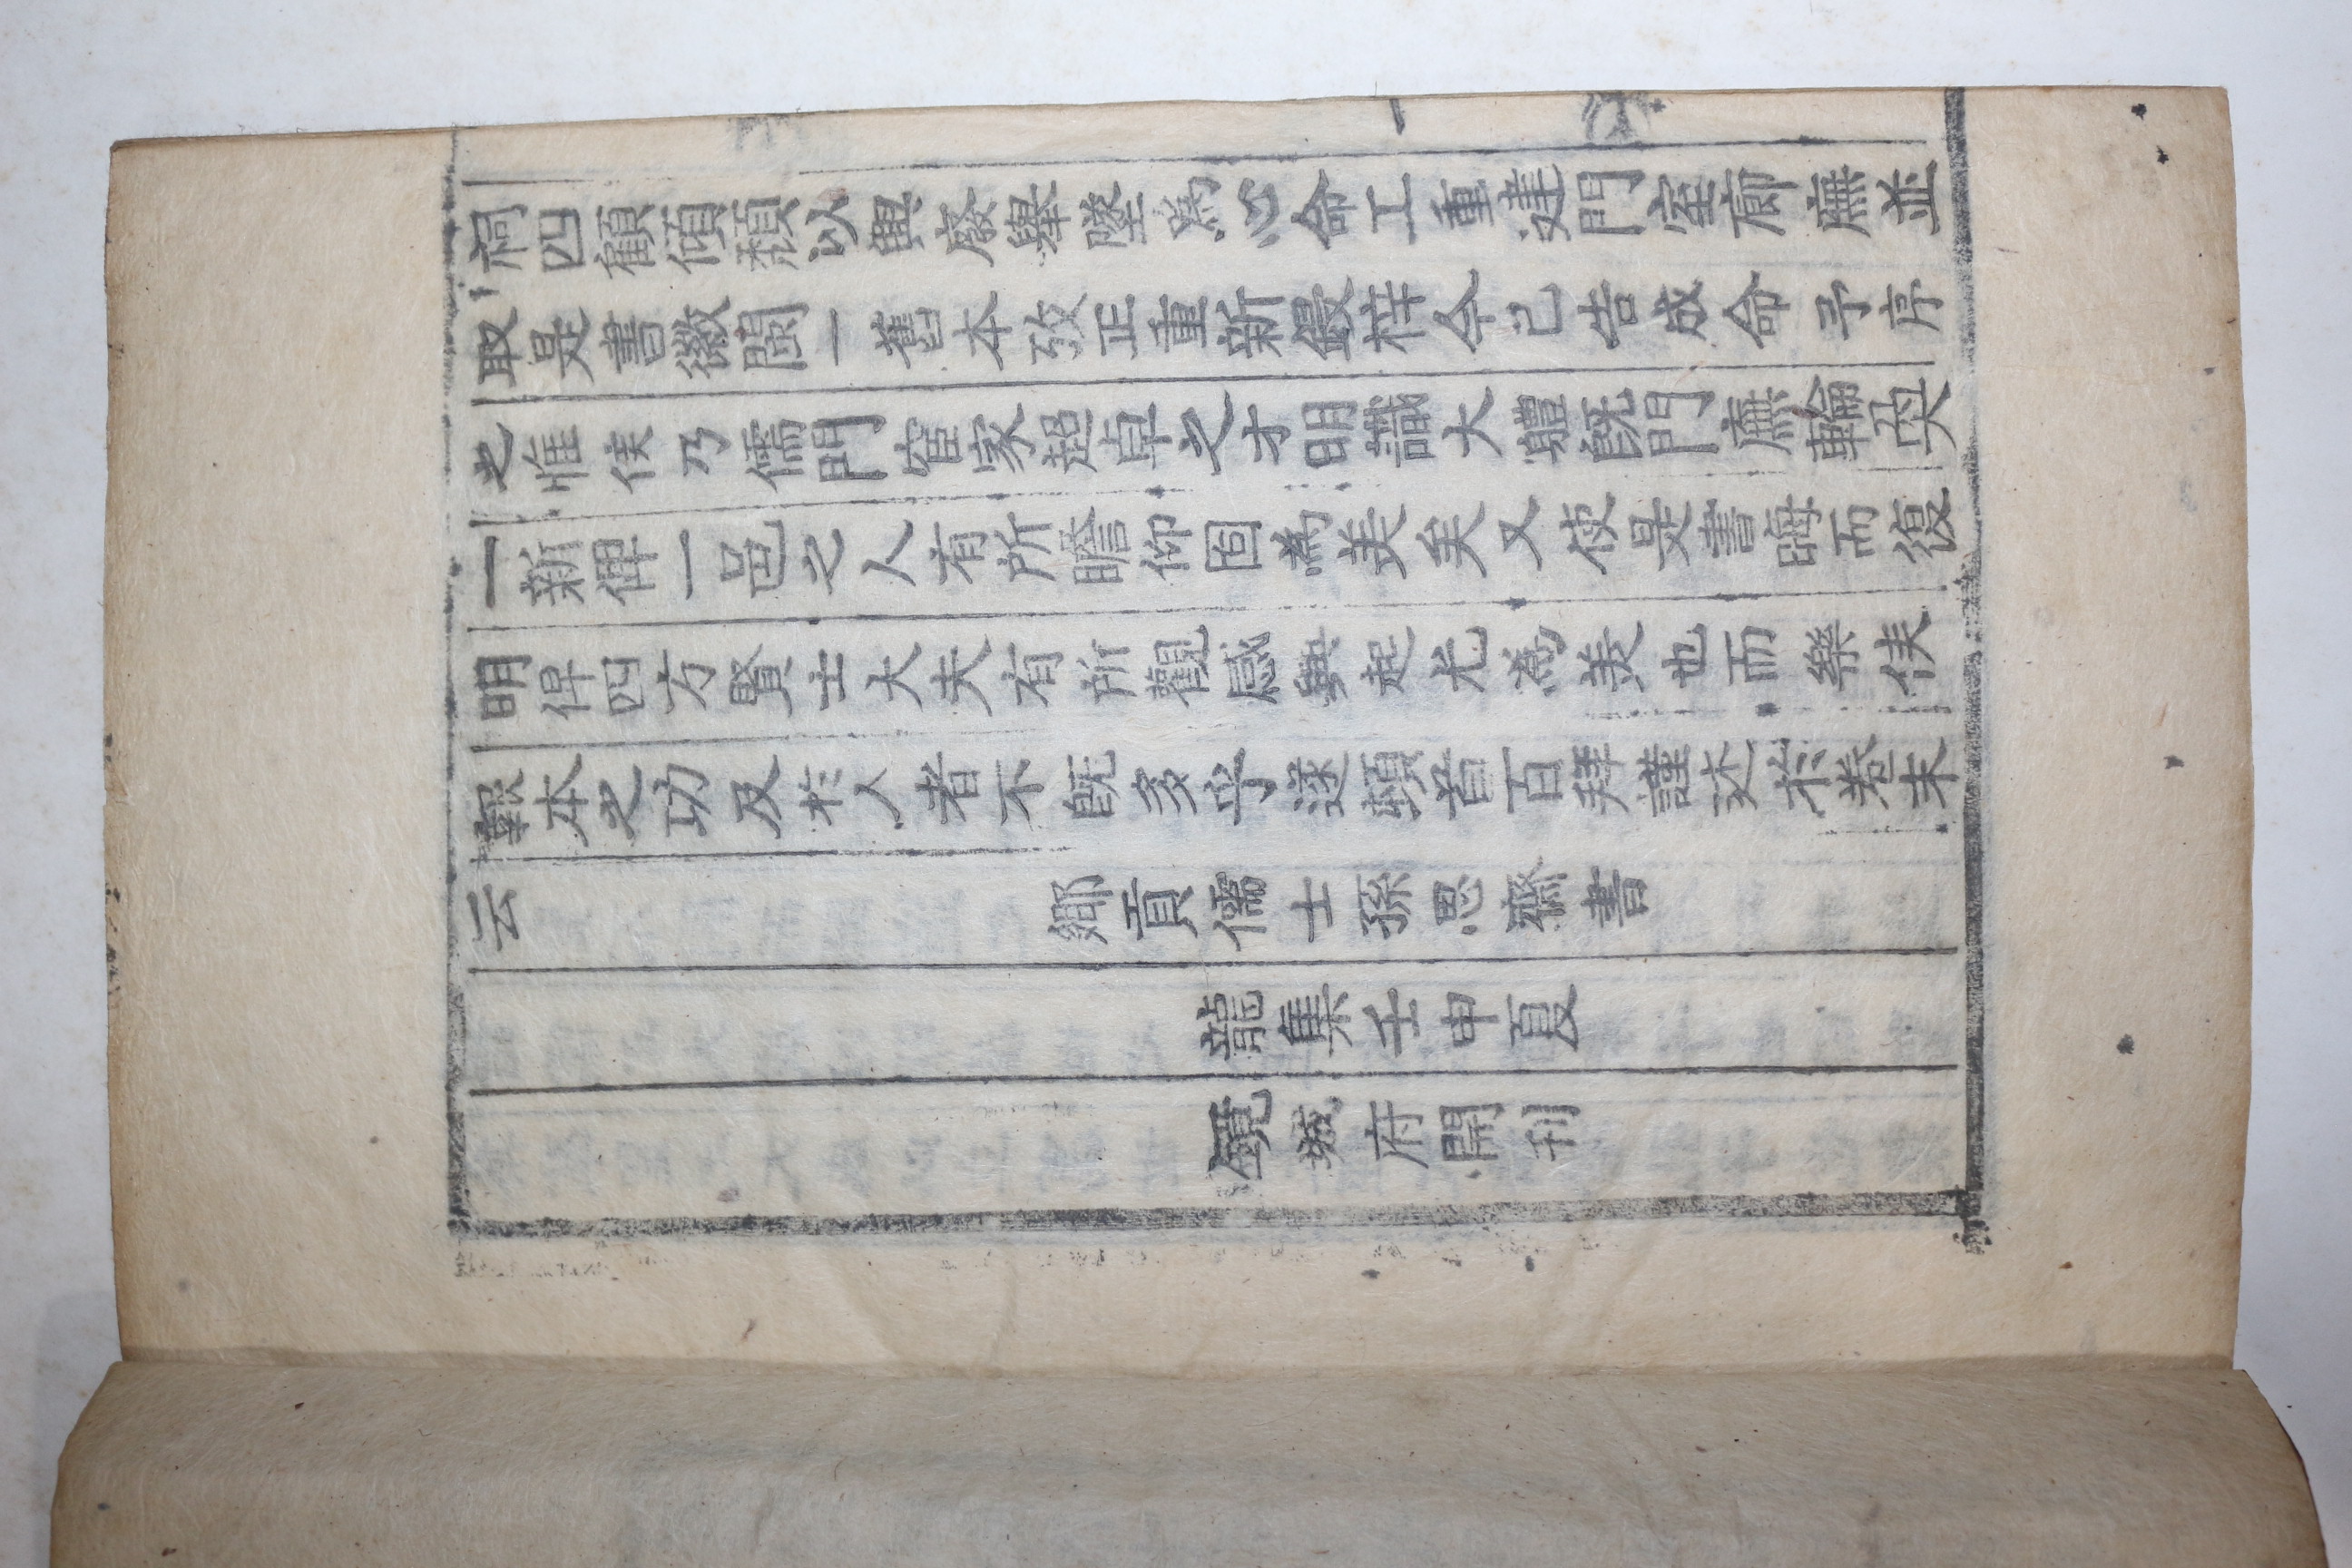 祠四顧傾頹以興廢舉墜爲心命工重建門室廊廡並
取是書徽閩一舊本攷正重新鋟梓今已告成命予序
之惟侯乃儒門宦家超卓之才明識大軆旣門廡輪奐
一新俾一邑之人有所瞻仰固為美矣又使是書晦而復
明俾四方賢士大夫有所觀感興起尤為美也而樂侯
報本之功及於人者不旣多乎遂頓首百拜謹述於卷末
云
鄉貢儒士孫思齋書
龍集壬申夏
鏡城府開刊